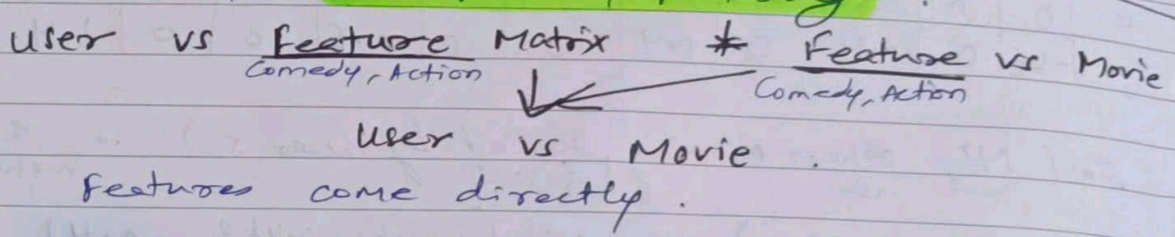 User vs Feature Matrix * Feature vs Movie
Comedy, Action Comedy, Action
User vs Movie.
Features come directly.